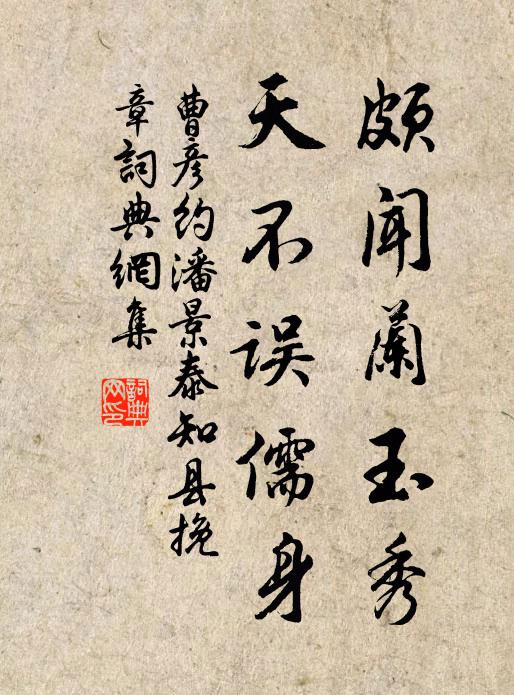 颇闻兰玉秀
天不误儒身
曹彦约潘景泰知县挽
章词典网集
詞典网印